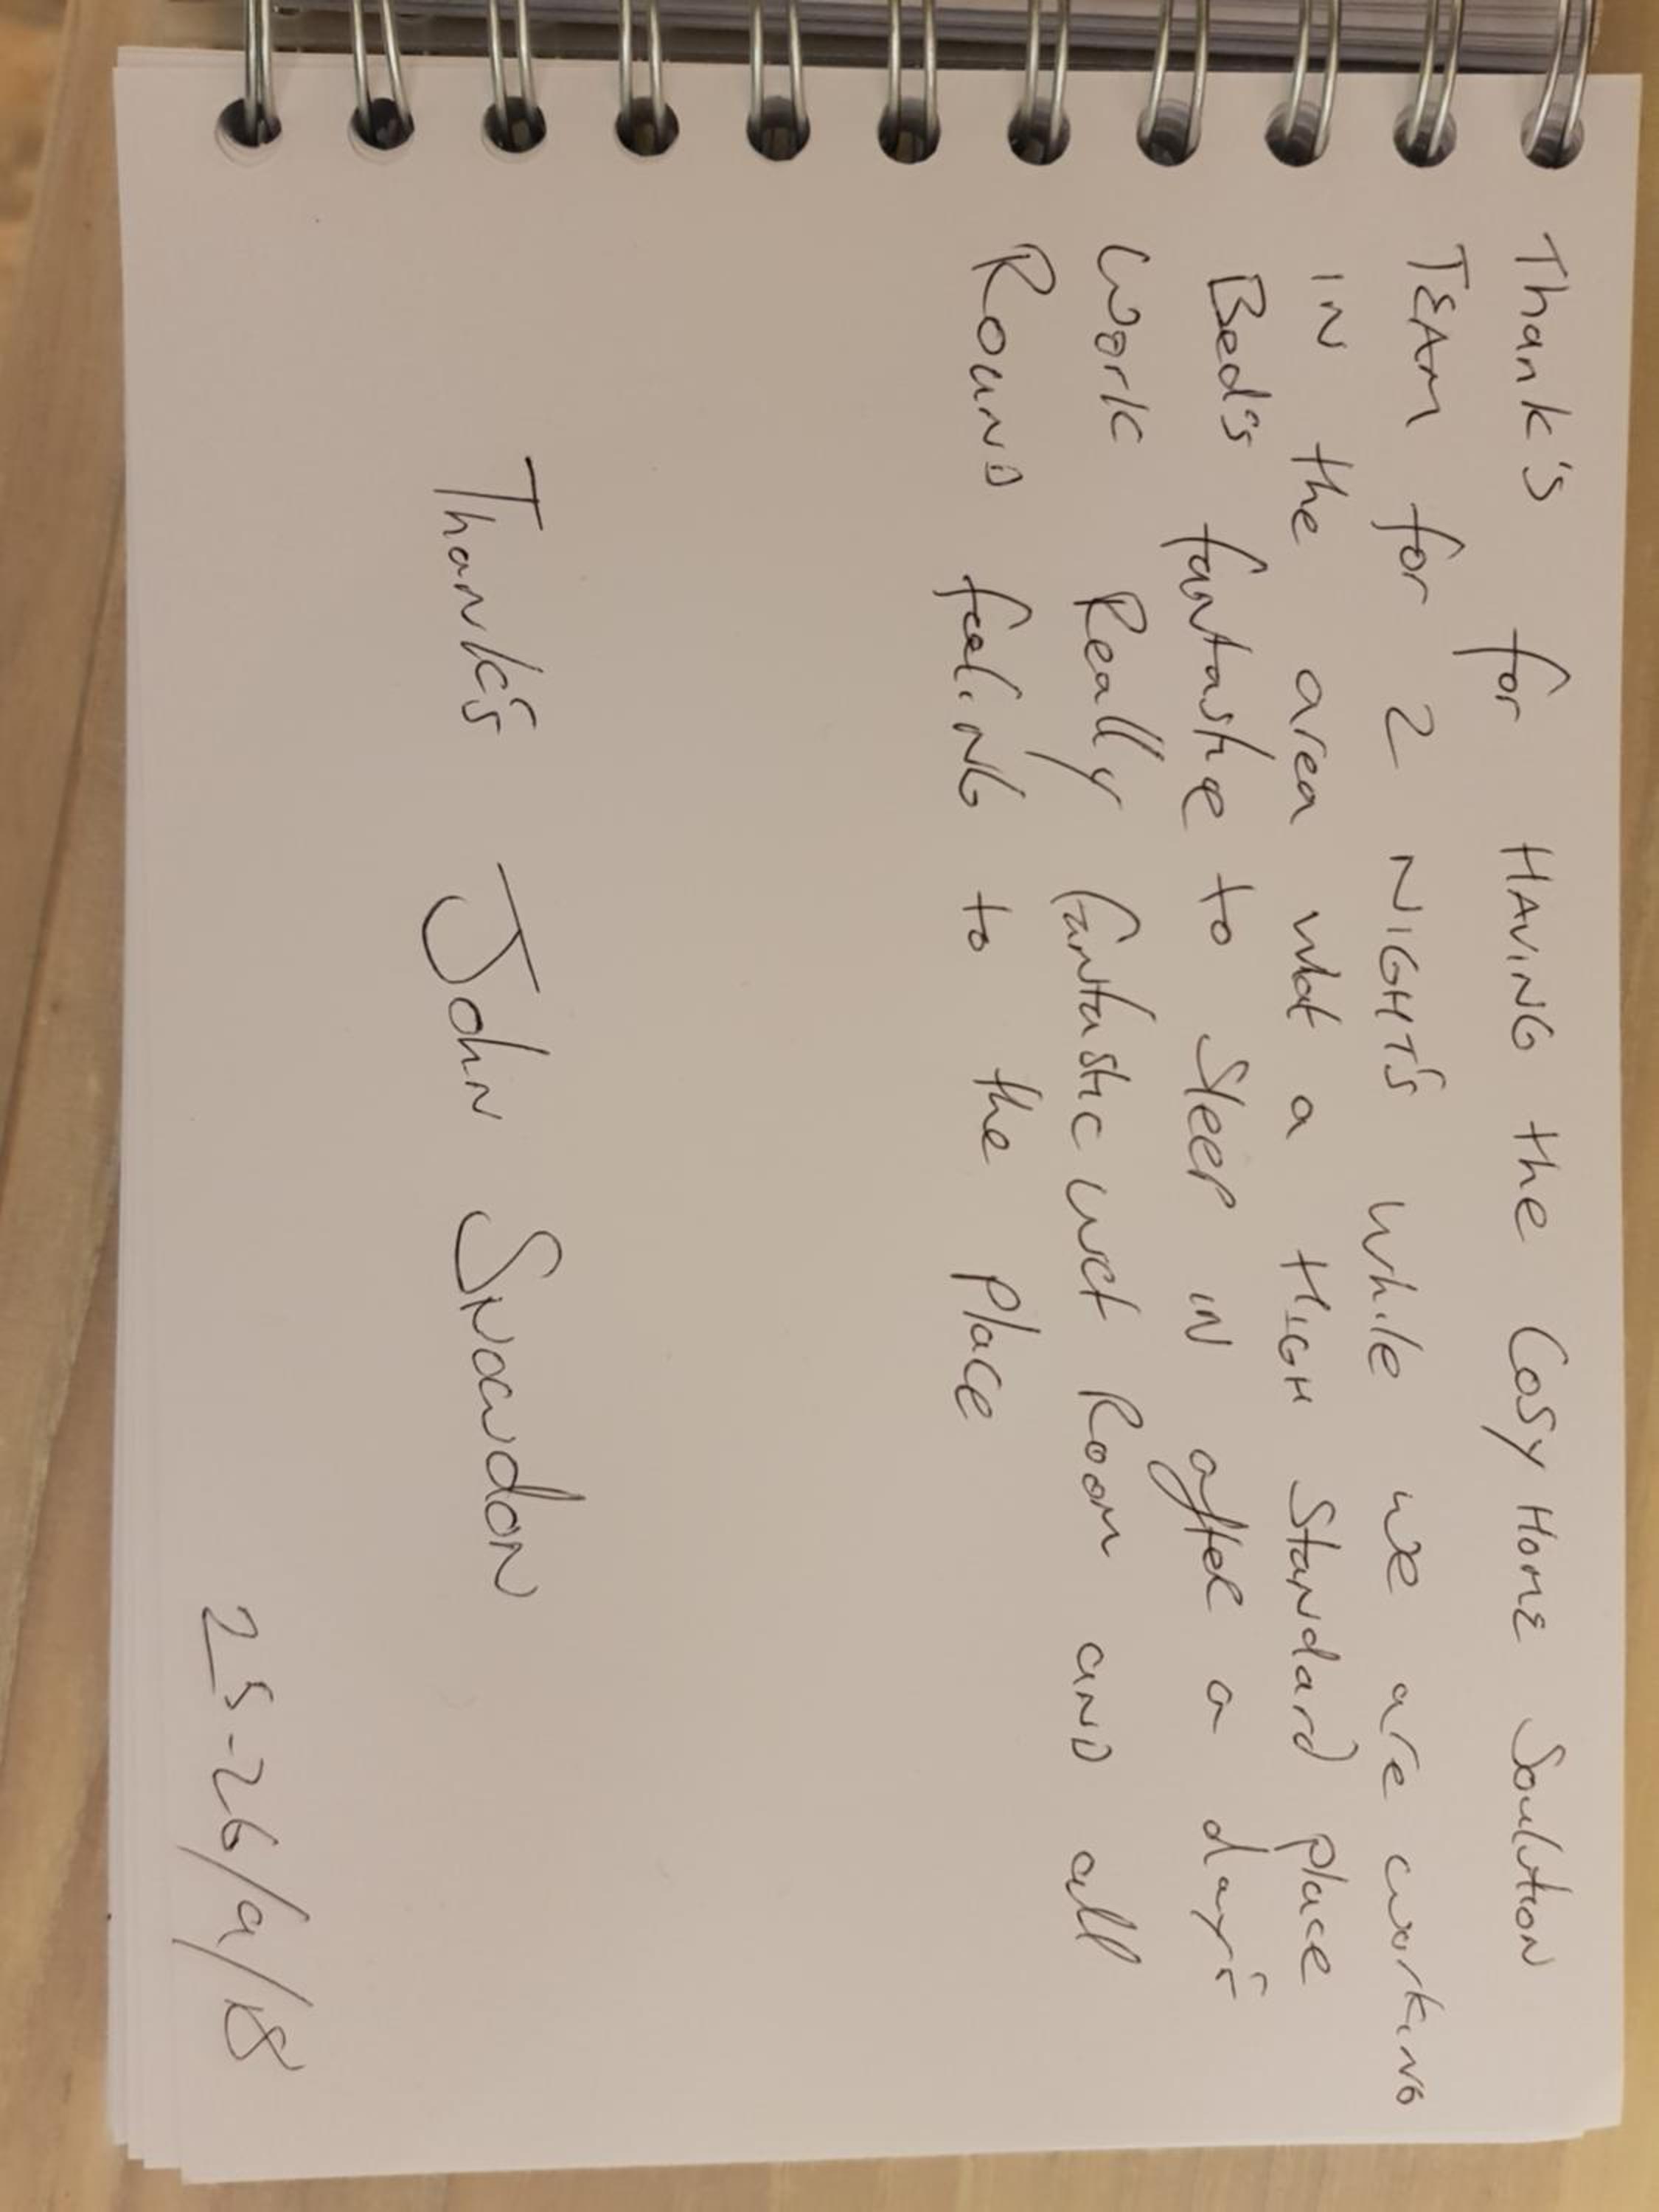 Thank's for HAVING the Cosy Home Soulution
TEAM for 2 NIGHT'S While we are working
IN the area what a HIGH Standard place
Bed's fantastice to Sleep IN after a day's
Work Really fantastic wet Room and all
Round feeling to the Place
Thank's John Snowdon
25-26/9/18